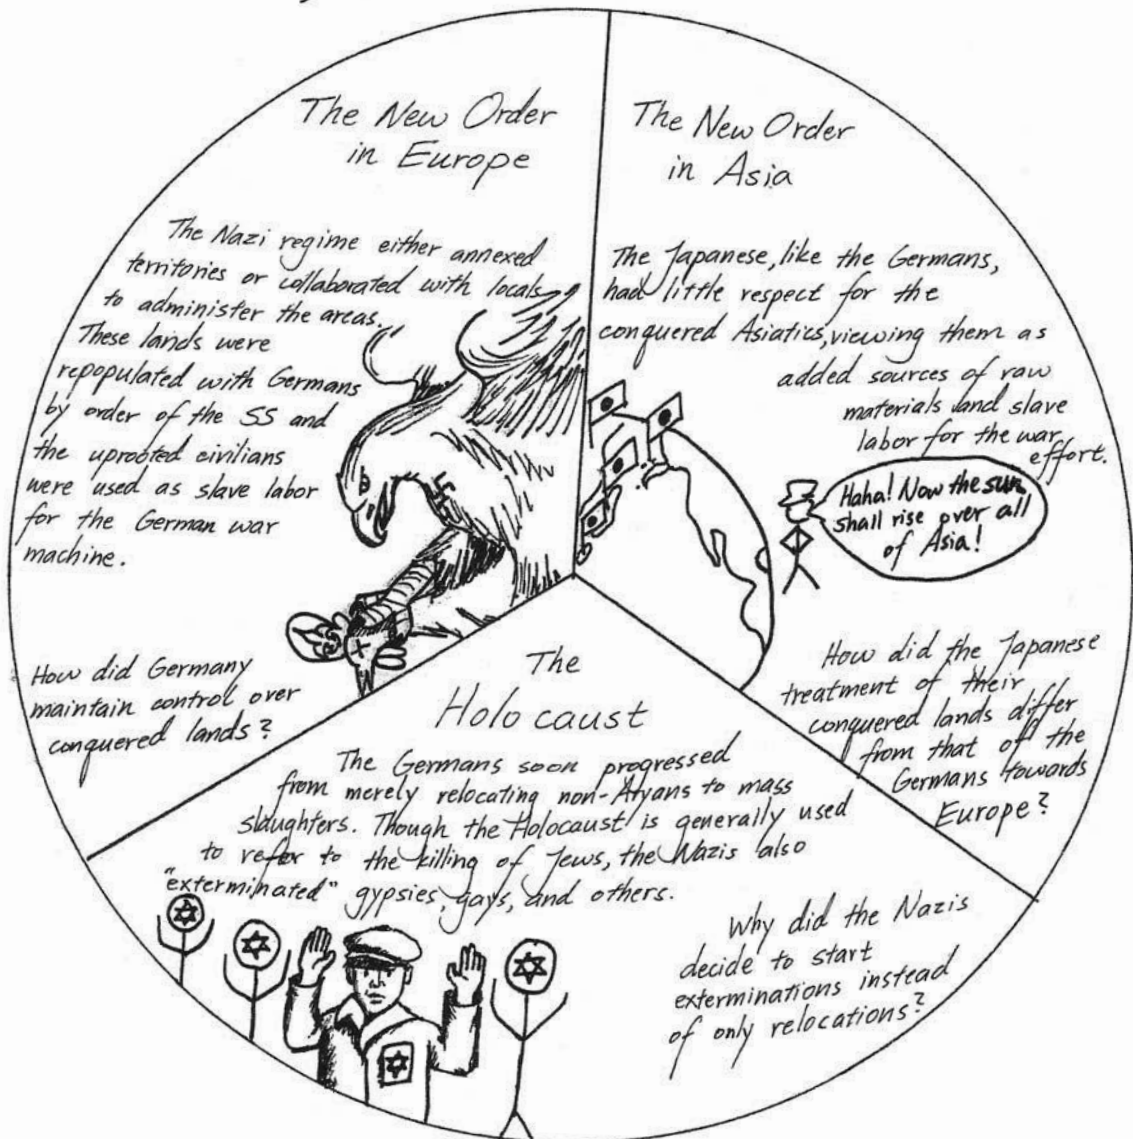 The New Order
in Europe
The Nazi regime either annexed
territories or collaborated with locals
to administer the areas.
These lands were
repopulated with Germans
by order of the SS and
the uprooted civilians
were used as slave labor
for the German war
machine.
How did Germany
maintain control over
conquered lands?
The New Order
in Asia
The Japanese, like the Germans,
had little respect for the
conquered Asiatics, viewing them as
added sources of raw
materials and slave
labor for the war
effort.
Haha! Now the sun
shall rise over all
of Asia!
How did the Japanese
treatment of their
conquered lands differ
from that of the
Germans towards
Europe?
The
Holocaust
The Germans soon progressed
from merely relocating non-Aryans to mass
slaughters. Though the Holocaust is generally used
to refer to the killing of Jews, the Nazis also
"exterminated" gypsies, gays, and others.
Why did the Nazis
decide to start
exterminations instead
of only relocations?